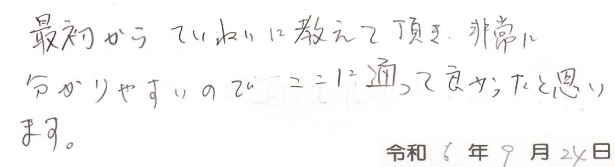 最初から ていねいに教えて頂き、非常に
分かりやすいので ここに通って良かったと思い
ます。
令和 6 年 9 月 24 日